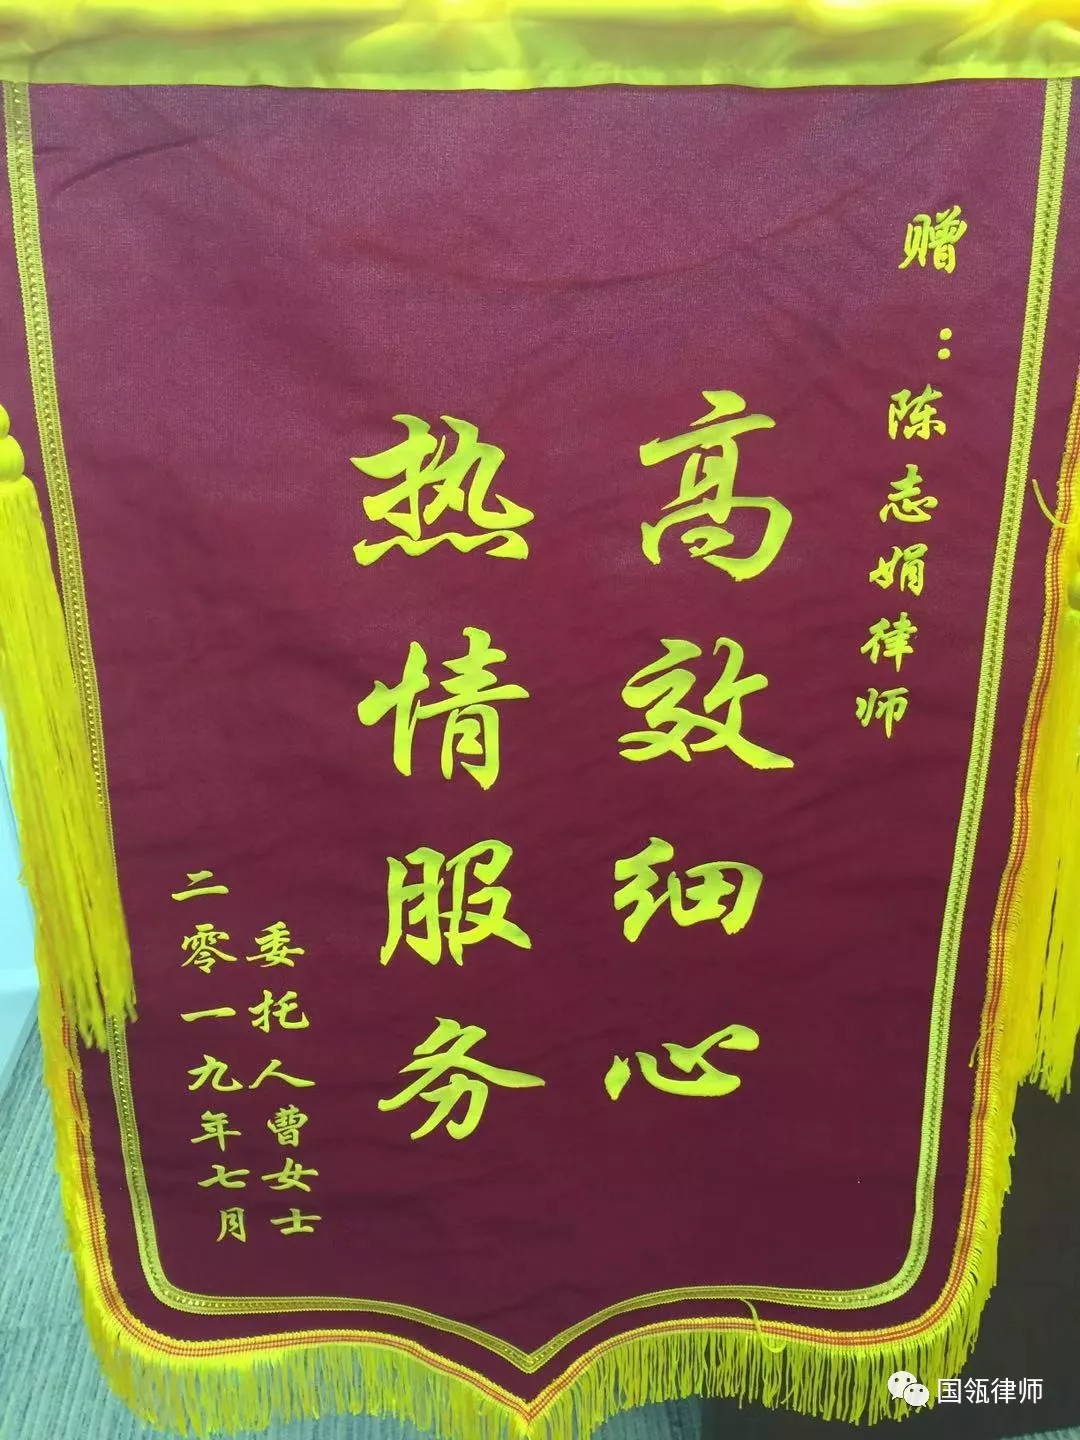 赠：陈志娟律师
高效细心
热情服务
委托人曹女士
二零一九年七月
国瓴律师